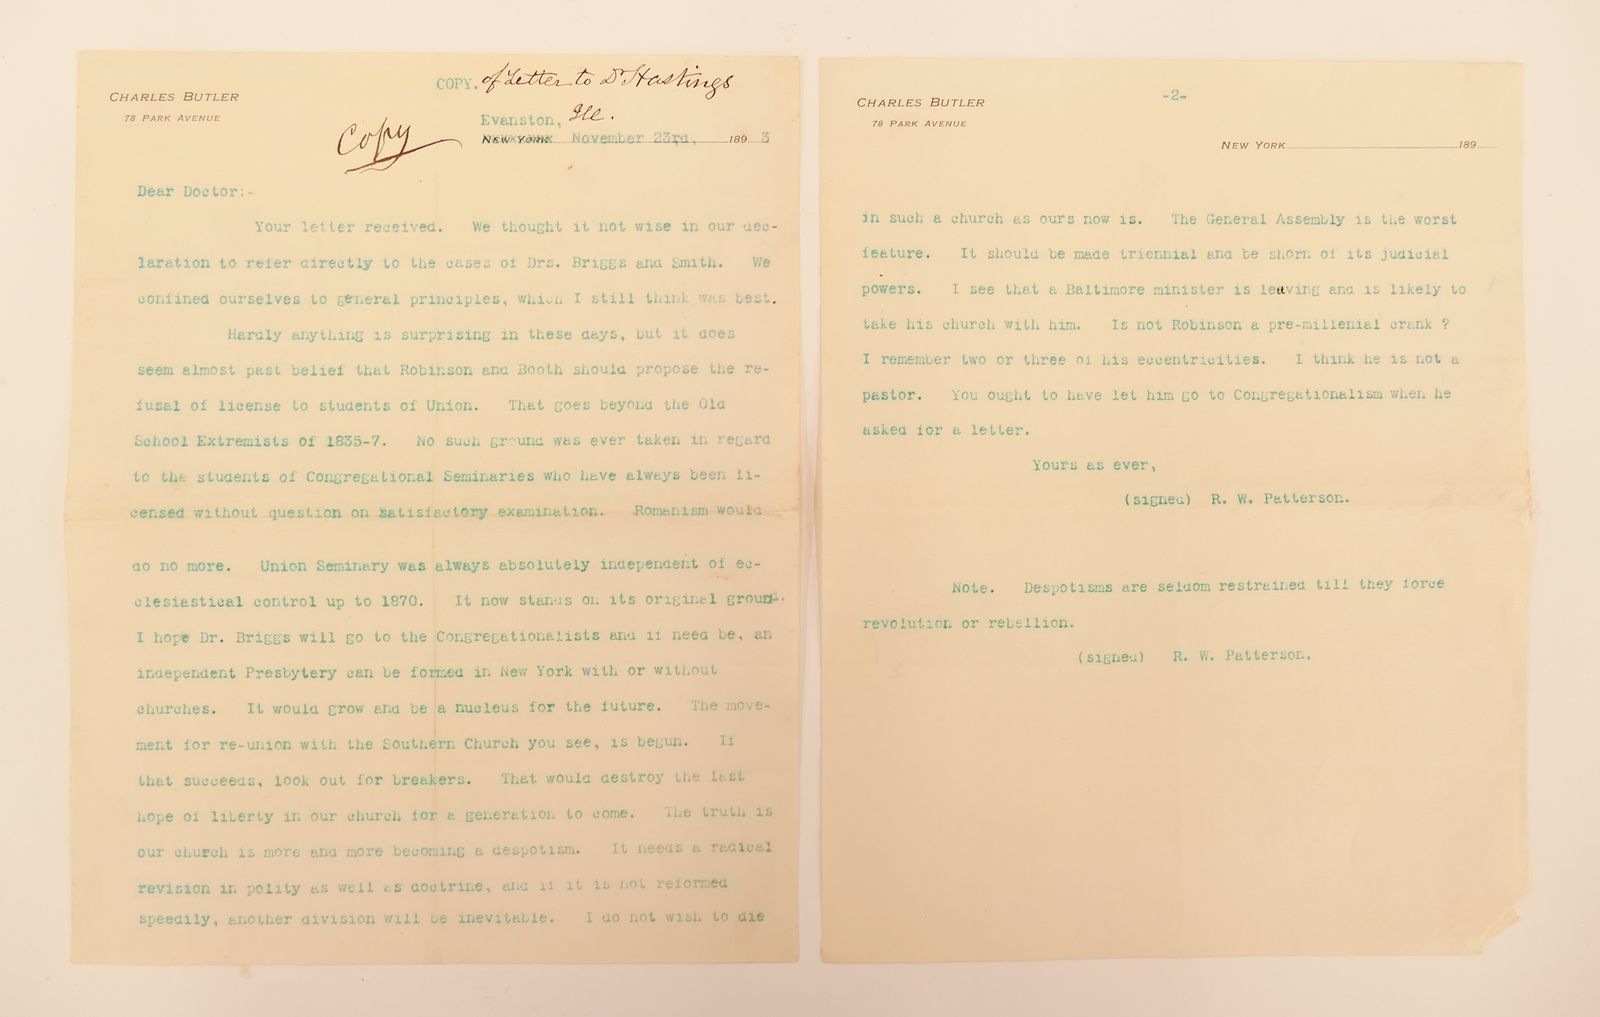 CHARLES BUTLER
78 PARK AVENUE
COPY. of Letter to Dr Hastings
Copy
Evanston, Ill.
NEW YORK November 23rd, 1893
Dear Doctor:-
Your letter received. We thought it not wise in our dec-
laration to refer directly to the cases of Drs. Briggs and Smith. We
confined ourselves to general principles, which I still think was best.
Hardly anything is surprising in these days, but it does
seem almost past belief that Robinson and Booth should propose the re-
fusal of license to students of Union. That goes beyond the Old
School Extremists of 1835-7. No such ground was ever taken in regard
to the students of Congregational Seminaries who have always been li-
censed without question on satisfactory examination. Romanism would
do no more. Union Seminary was always absolutely independent of ec-
clesiastical control up to 1870. It now stands on its original ground.
I hope Dr. Briggs will go to the Congregationalists and if need be, an
independent Presbytery can be formed in New York with or without
churches. It would grow and be a nucleus for the future. The move-
ment for re-union with the Southern Church you see, is begun. If
that succeeds, look out for breakers. That would destroy the last
hope of liberty in our church for a generation to come. The truth is
our church is more and more becoming a despotism. It needs a radical
revision in polity as well as doctrine, and if it is not reformed
speedily, another division will be inevitable. I do not wish to die
CHARLES BUTLER
78 PARK AVENUE
-2-
NEW YORK 189
in such a church as ours now is. The General Assembly is the worst
feature. It should be made triennial and be shorn of its judicial
powers. I see that a Baltimore minister is leaving and is likely to
take his church with him. Is not Robinson a pre-millenial crank ?
I remember two or three of his eccentricities. I think he is not a
pastor. You ought to have let him go to Congregationalism when he
asked for a letter.
Yours as ever,
(signed) R. W. Patterson.
Note. Despotisms are seldom restrained till they force
revolution or rebellion.
(signed) R. W. Patterson.